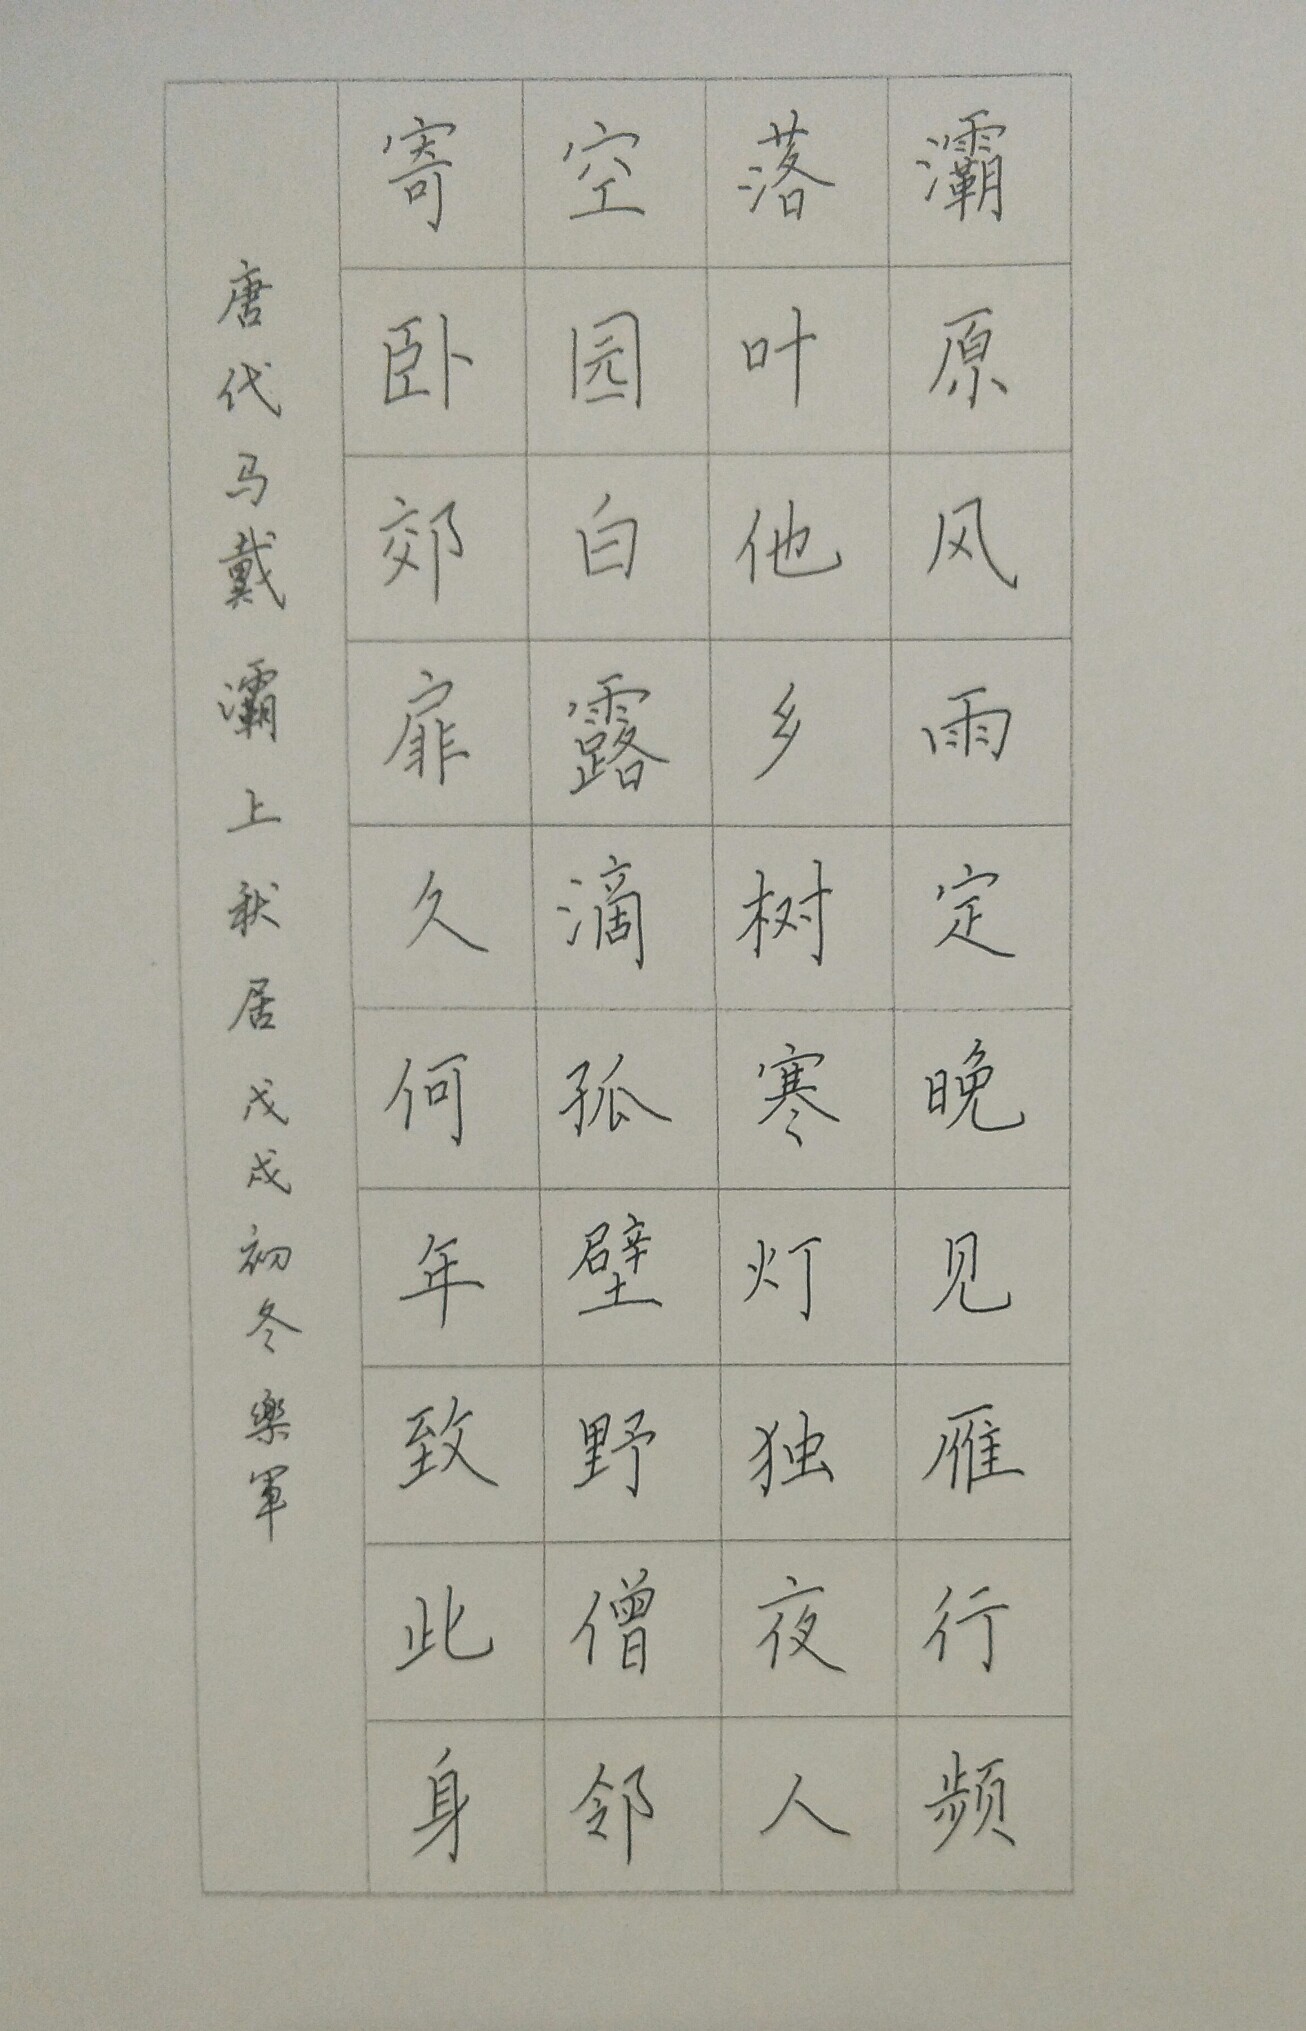 灞原风雨定晚见雁行频
落叶他乡树寒灯独夜人
空园白露滴孤壁野僧邻
寄卧郊扉久何年致此身
唐代马戴灞上秋居戊戌初冬樂軍